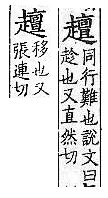 𧾍
同行難也說文曰
趁也又直然切
𧾍
移也又
張連切